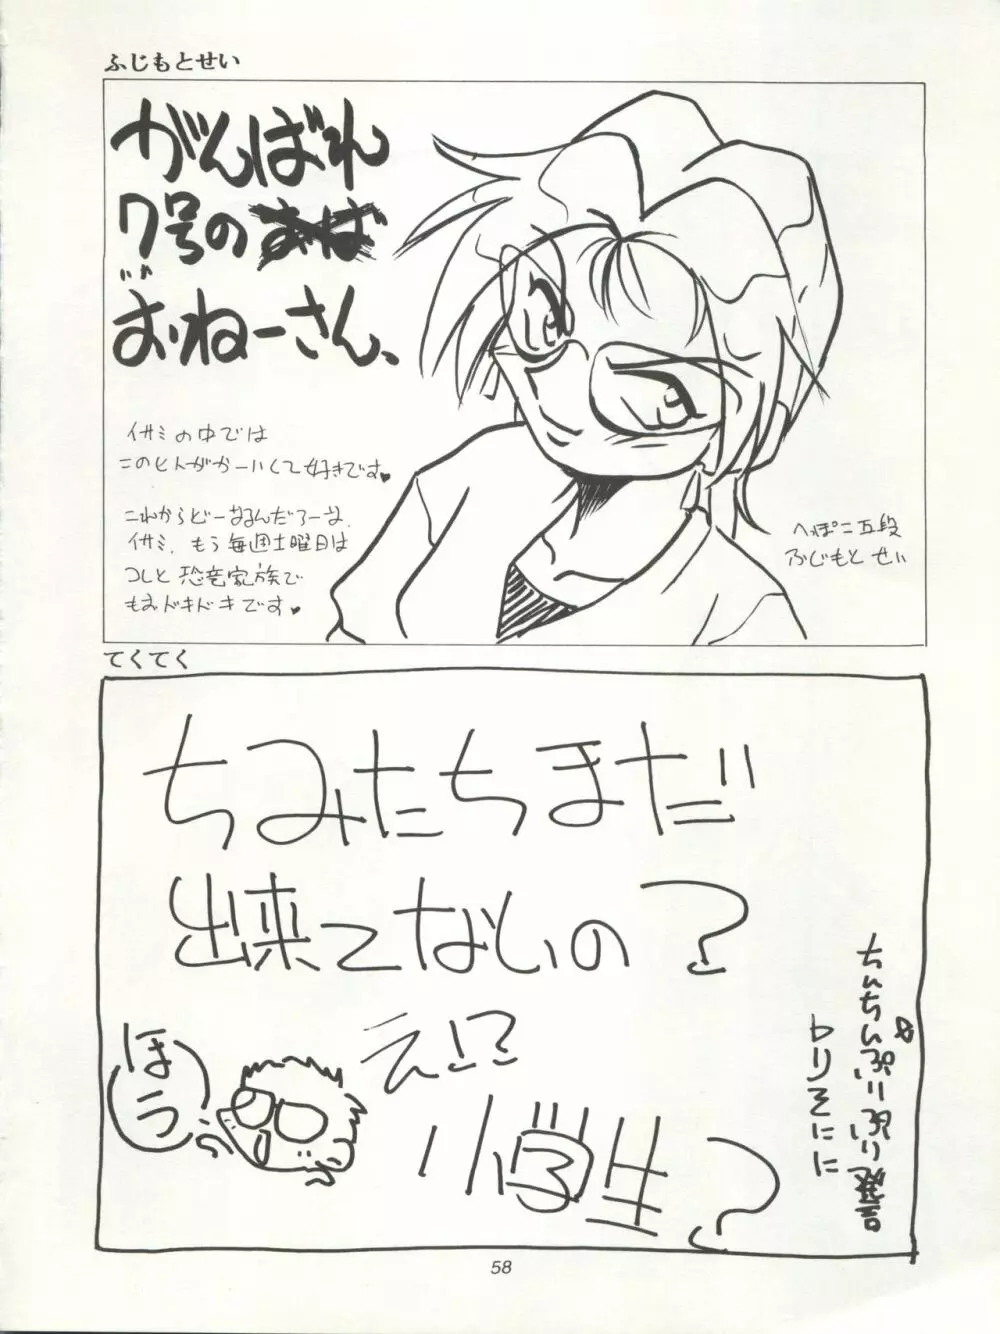 ふじもとせい
がんばれ
7号の
おねーさん、
イサミの中では
このヒトがかーいくて好きです♥
これからどーなるんだろーな、
イサミ、もう毎週土曜日は
コレと恐竜家族で
もおドキドキです♥
へっぽこ五段
ふじもと せい
てくてく
ちみたちまだ
出来てないの?
え!?
小学生?
ほう
ちんちんぷりぷり発言
トリそにに
58